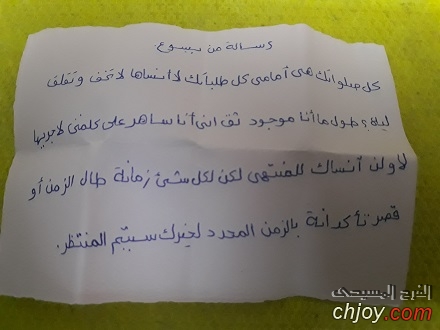 رسالة من يسوع
كل صلواتك هى أمامى كل طلباتك لا أنساها لا تخف وتقلق
ليه؟ طول ما أنا موجود ثق انى أنا ساهر على كلمتى لاجريها
لا ولن أنساك للمنتهى لكن لكل شئ زمانة طال الزمن أو
قصر تأكد انة بالزمن المحدد لخيرك سيتم المنتظر.
الفرح المسيحى
chjoy.com